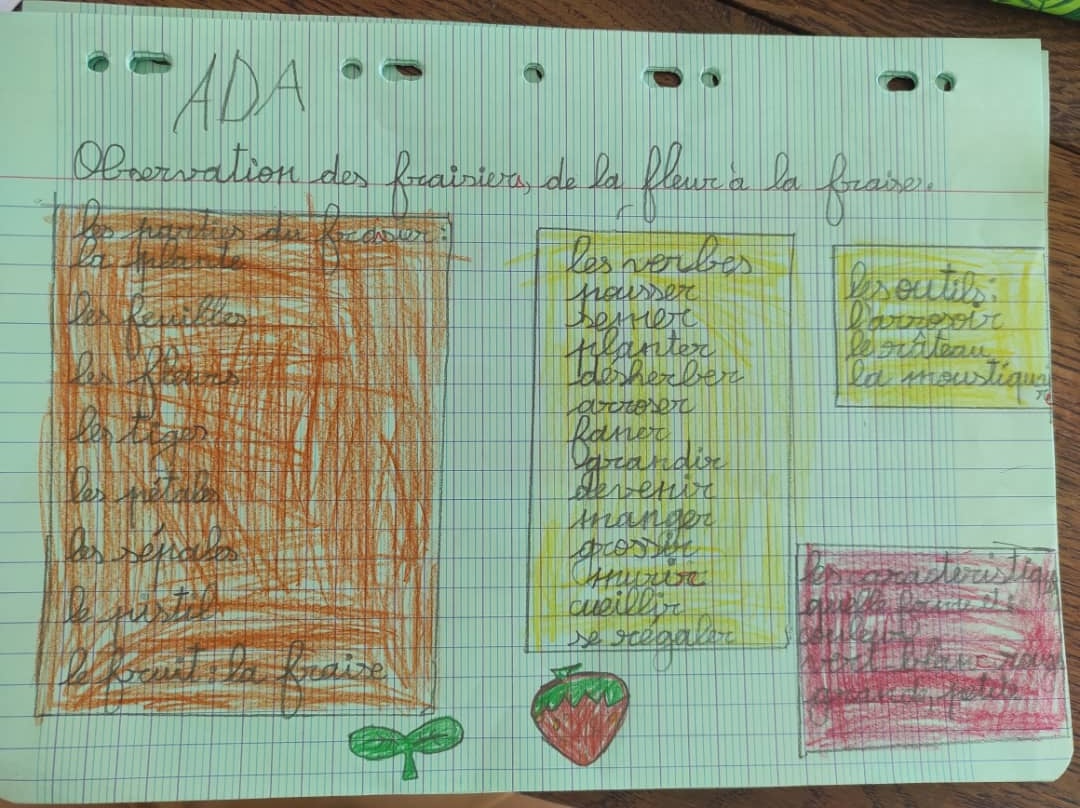 ADA
Observation des fraisiers, de la fleur à la fraise.
les parties du fraisier:
la plante
les feuilles
les fleurs
les tiges
les pétales
les sépales
le pistil
le fruit : la fraise
les verbes
pousser
semer
planter
désherber
arroser
faner
grandir
devenir
manger
grossir
murir
cueillir
se régaler
les outils:
l'arrosoir
le râteau
la moustiquai
re
les caractéristiqu
quelle forme
couleur
vert blanc roug
grand, petit